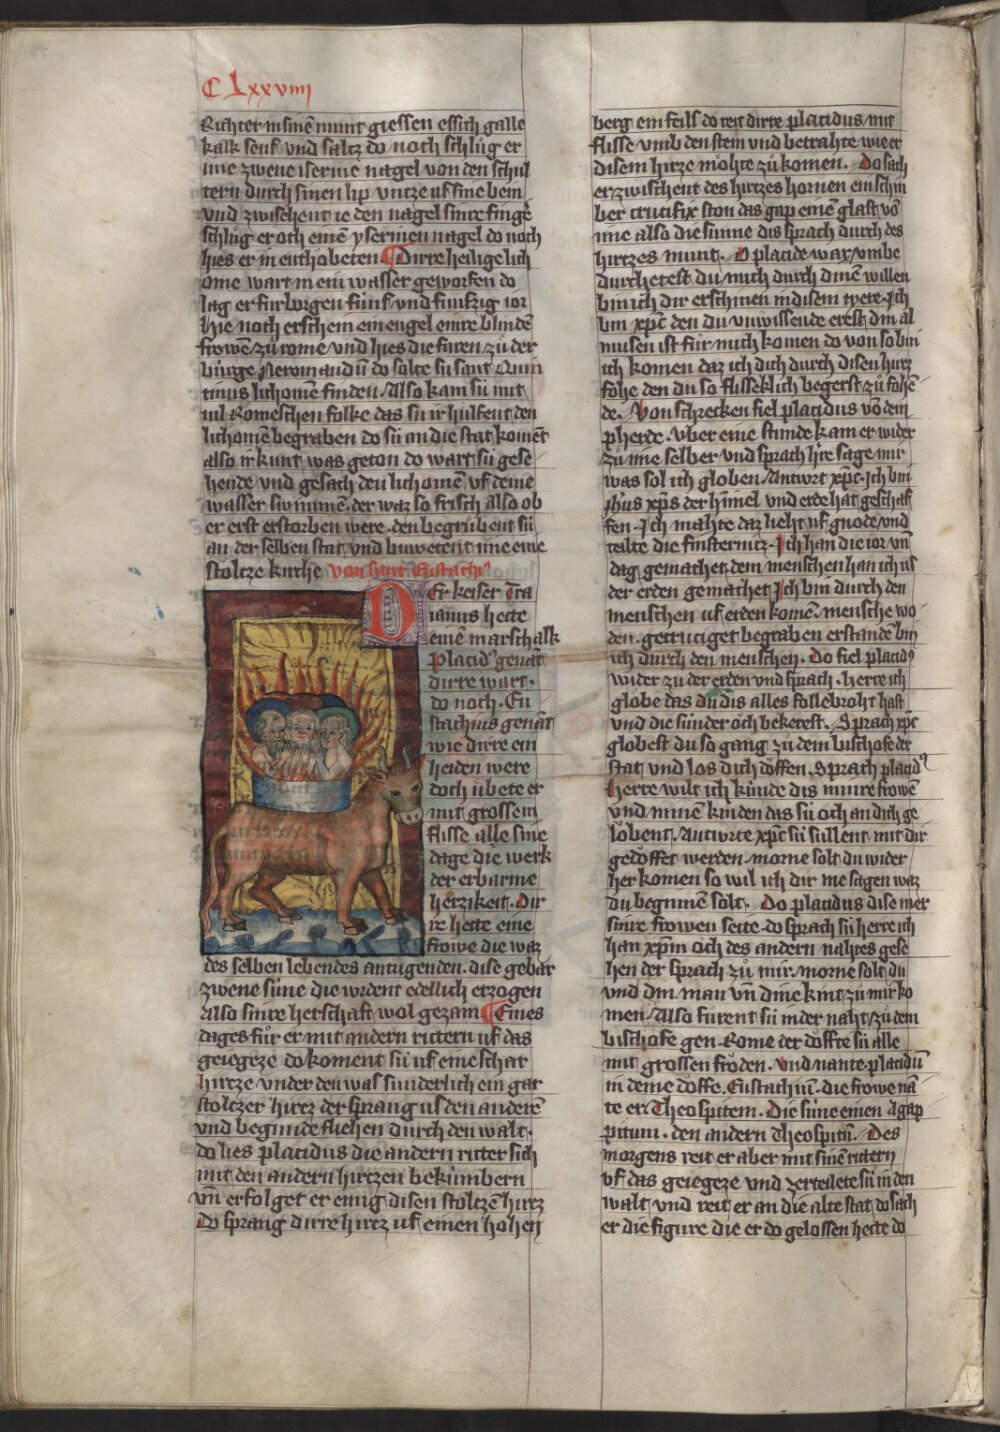 C Lxxviiij
Richter in sinen munt giessen essich galle
kalk senf vnd saltz do noch schlůg er
ime zwene iserine nagel von den schul
tern durch sinen lip vntze uf sine bein
vnd zwischent ie den nagel sinre fingē
schlůg er och einē ysernien nagel do noch
hies er in enthöbeten ¶ Dirre heilige lich
ome wart in ein wasser geworfen do
lag er fürborgen fünf vnd funfzig ior
Hie noch erschein ein engel einre blindē
frowē zů rome vnd hies die faren zů der
bürge veromandū do solte sü sant Quin
tinus lichomē finden. Also kam sü mit
vil Romeschen folke das sü ir hülfent den
lichomē begraben do sü an die stat komēt
also ir kunt was geton do wart sü gese
hende vnd gesach den lichomē uf deme
wasser swimmē. der waz so frisch also ob
er erst erstorben were. den begrůbent sü
an der selben stat vnd buwetent ime eine
stoltze kirche von sant Eustachio
DEr keiser Tra
ianus hette
einē marschalk
Placidꝰ genāt
dirre wart.
do noch. Eu
stachius genāt
wie dirre ein
heiden were
doch übete er
mit grossem
flisse alle sine
dage die werk
der erbarme
hertzikeit. Dir
re hette eine
frowe die waz
des selben lebendes an tugenden. dise gebar
zwene süne die wrdent edellich erzogen
also sinre herschaft wol gezam ¶ Eines
dages für er mit andern rittern uf das
geiegeze do koment sü uf eine schar
hirtze vnder den was sunderlich ein gar
stoltzer hirtz der sprang us den anderē
vnd begunde fliehen durch den walt.
do lies placidus die andern ritter sich
mit den andern hirtzen bekümbern
vn̄ erfolget er einig disen stoltzē hirtz
Do sprang dirre hirtz uf einen hohen
berg ein feils do reit dirre placidus mit
flisse vmb den stein vnd betrahte wie er
disem hirze möhte zů komen. Do sach
er zwischent des hirtzes hornen ein schin
ber crucifix ston das gap einē glast vō
ime also die sunne dis sprach durch des
hirtzes munt. O placide war vmbe
durchetest du mich durch dinē willen
bin ich dir erschinen in disem tyere. Ich
bin xp̄c den du vnwissende erest din al
můsen ist für mich komen do von so bin
ich komen daz ich dich durch disen hirtz
fohe den du so flisseklich begerst zů fohē
de. Von schrecken fiel placidus vō dem
pherde. vber eine stunde kam er wider
zů ime selber vnd sprach h̄re sage mir
was sol ich globen. Antwrt xp̄c. Ich bin
jhūs xp̄s der himel vnd erde hat geschaf
fen. Ich mahte daz lieht uf gnode vnd
teilte die finsternitz. Ich han die ior vn̄
dag gemachet dem menschen han ich us
der erden gemachet Ich bin durch den
menschen uf erden komē. mensche wo
den. gecruciget begraben erstandē bin
ich durch den menschen. Do fiel placidꝰ
wider zů der erden vnd sprach. herre ich
globe das du dis alles follebroht hast
vnd die sünder öch bekerest. Sprach xp̄c
globest du so gang zů dem bischofe der
stat vnd los dich döffen. Sprach placidꝰ
herre wilt ich künde dis minre frowē
vnd minē kinden das sü öch an dich ge
löbent. Antwrte xp̄c sü süllent mit dir
gedöffet werden. morne solt du wider
her komen so wil ich dir me sagen waz
du beginnē solt. Do placidus dise mer
sinre frowen seite. do sprach sü herre ich
han xp̄m öch des andern nahtes gese
hen der sprach zů mir. morne solt du
vnd din man vn̄ dine kint zů mir ko
men. Also fürent sü in der naht zů dem
bischofe gen. Rome der döffte sü alle
mit grossen fröden. vnd nante placidū
in deme döffe. Eustachiū. die frowe nā
te er Theospitem. Die süne einen Agap
pitum. den andern Theospitū. Des
morgens reit er aber mit sinē rittern
vf das geiegeze vnd zerteilete sü in den
walt vnd reit er an die alte stat do sach
er die figure die er do gelossen hette do